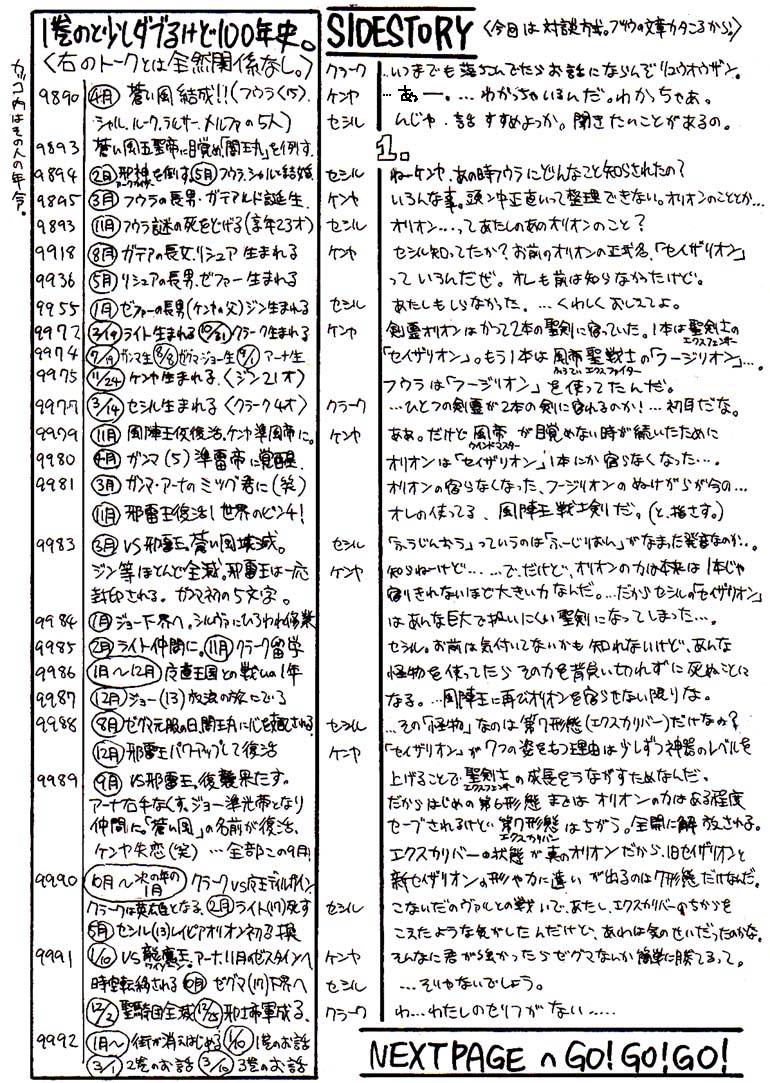 1巻のと少しダブるけど100年史。
〈右のトークとは全然関係なし。〉
カッコ内はその人の年令。
9890 4月 蒼い風 結成!!(フウラ〈15〉、
シャル、ルーク、ラルサー、メルファの5人)
9893 蒼い風王聖帝に目覚め「闇王丸」を倒す。
9894 2月 邪神を倒す 5月 フウラ、シャルと結婚
9895 3月 フウラの長男・ガデアルド誕生
9893 11月 フウラ謎の死をとげる(享年23才)
9918 8月 ガデアの長女、リシュア 生まれる
9936 5月 リシュアの長男、ゼファー 生まれる
9955 1月 ゼファーの長男(ケンヤの父)ジン生まれる
9972 2/19 ライト生まれる 10/31 クラーク生まれる
9974 7/19 ガンマ生 8/8 ゼグマ・ジョー生 9/1 アーナ生
9975 11/24 ケンヤ生まれる。〈ジン21才〉
9977 3/14 セシル生まれる〈クラーク4才〉
9979 11月 風陣王仮復活、ケンヤ準風帝に。
9980 4月 ガンマ(5) 準雷帝に覚醒
9981 3月 ガンマ・アーナのミツグ君に(笑)
11月 邪雷王復活！世界のピンチ！
9983 3月 VS邪雷王。蒼い風壊滅。
ジン等ほとんど全滅。邪雷王は一応
封印される。ガンマ初の5文字。
9984 1月 ジョー下界へ。シルヴァにひろわれ修業
9985 2月 ライト仲間に。11月 クラーク留学
9986 1月〜12月 皮膚王国との戦いの1年
9987 12月 ジョー(13)放浪の旅にでる
9988 8月 ゼグマ元服の日、闇王丸に心を支配される
12月 邪雷王パワーアップして復活
9989 9月 VS邪雷王。復讐果たす。
アーナ右手なくす。ジョー準光帝となり
仲間に。「蒼い風」の名前が復活、
ケンヤ失恋(笑) …全部この9月!
9990 10月〜次の年の1月 クラークVS魔王デルガイン
クラークは英雄となる、2月 ライト(17)死す
5月 セシル(13)レイピアオリオン初召換
9991 1/10 VS龍魔王、アーナ、11月のゼスタインへ
時空転移される 10月 ゼグマ(17)下界へ
12/2 聖騎団全滅 12/25 邪士帝軍成る、
9992 1月〜 街が消えはじめる 1/10 1巻のお話
3/1 2巻のお話 3/10 3巻のお話
SIDESTORY 〈今回は対談方式。フツウの文章カタこるから!〉
クラーク …いつまでも落ちこんでたらお話にならんぞリュウオウザン。
ケンヤ …あぁー。…わかっちゃいるんだ。わかっちゃあ。
セシル んじゃ・話すすめよっか。聞きたいことがあるの。
1.
セシル ねーケンヤ、あの時フウラにどんなこと知らされたの？
ケンヤ いろんな事。頭ン中正直いって整理できない。オリオンのこととか…
セシル オリオン…ってあたしのあのオリオンのこと？
ケンヤ セシル知ってたか？お前のオリオンの正式名、「セイザリオン」
っていうんだぜ。オレも前は知らなかったけど。
セシル あたしもしらなかった。…くわしくおしえてよ。
ケンヤ 剣霊オリオンはかつて2本の聖剣に宿っていた。1本は聖剣士の
エクスフェンサー
「セイザリオン」。もう1本は風帝聖戦士の「フージリオン」…。
ふうてい エクスファイター
フウラは「フージリオン」を使ってたんだ。
クラーク …ひとつの剣霊が2本の剣に宿れるのか！…初耳だな。
ケンヤ ああ。だけど風帝が目覚めない時が続いたために
ウインドマスター
オリオンは「セイザリオン」1本にしか宿らなくなった…。
オリオンの宿らなくなった、フージリオンのぬけがらが今の…
オレの使ってる、風陣王戦士剣だ。(と、指さす。)
セシル 「ふうじんおう」っていうのは「ふーじりおん」がなまった発音なのか…。
ケンヤ 知らねーけど……で、だけど、オリオンの力は本来は1本じゃ
宿りきれないほど大きい力なんだ。…だからセシルの「セイザリオン」
はあんな巨大で扱いにくい聖剣になってしまった…。
セシル。お前は気付いてないかも知れないけど、あんな
怪物を使ってたらその力を背負い切れずに死ぬことに
なる。…風陣王に再びオリオンを宿らせない限りな。
セシル …その「怪物」なのは第7形態(エクスカリバー)だけなの？
ケンヤ 「セイザリオン」が7つの姿をもつ理由は少しずつ神器のレベルを
上げることで聖剣士の成長をうながすためなんだ。
エクスフェンサー
だからはじめの第6形態まではオリオンの力はある程度
セーブされるけど、第7形態はちがう。全開に解放される。
エクスカリバー
エクスカリバーの状態が真のオリオンだから、旧セイザリオンと
新セイザリオンの形や力に違いが出るのは7形態だけなんだ。
セシル こないだのヴァルとの戦いで、あたし、エクスカリバーのちからを
こえたような気がしたんだけど、あれは気のせいだったのかな。
ケンヤ そんなに君が強かったらゼグマなんか簡単に勝てるって。
セシル …そりゃないでしょう。
クラーク わ…わたしのセリフがない……
NEXTPAGE へ GO! GO! GO!